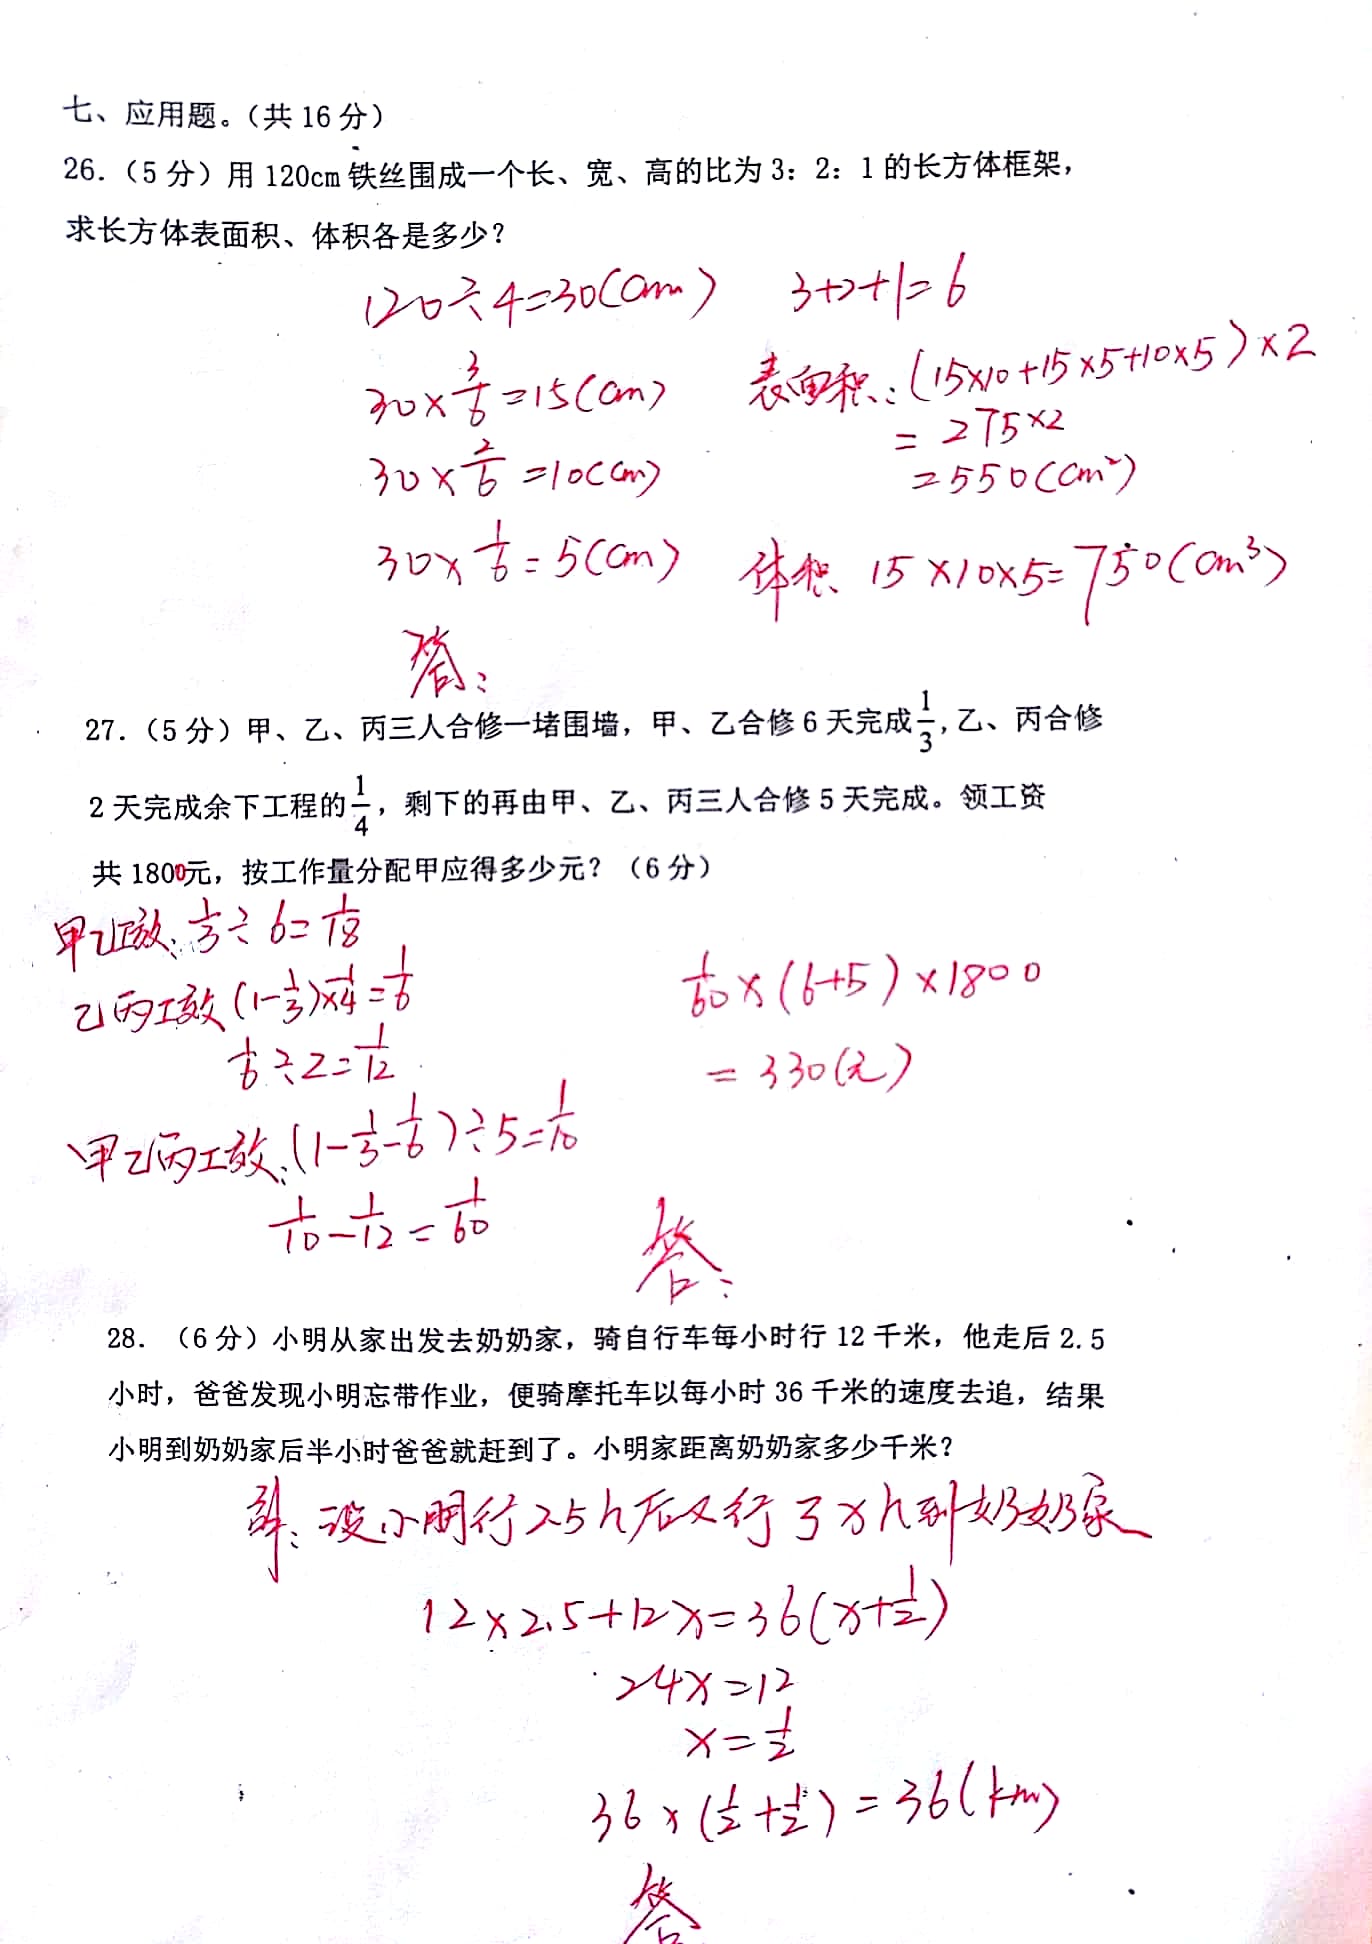 七、应用题。（共 16 分）
26.（5 分）用 120cm 铁丝围成一个长、宽、高的比为 3：2：1 的长方体框架，
求长方体表面积、体积各是多少？
120÷4=30(cm) 3+2+1=6
30×3/6=15(cm) 表面积：(15×10+15×5+10×5)×2
=275×2
30×2/6=10(cm) =550(cm²)
30×1/6=5(cm) 体积 15×10×5=750(cm³)
答：
27.（5 分）甲、乙、丙三人合修一堵围墙，甲、乙合修 6 天完成1/3,乙、丙合修
2 天完成余下工程的1/4，剩下的再由甲、乙、丙三人合修 5 天完成。领工资
共 1800元，按工作量分配甲应得多少元？（6 分）
甲乙工效：1/3÷6=1/18
乙丙工效 (1-1/3)×1/4=1/6
1/6÷2=1/12
甲乙丙工效：(1-1/3-1/6)÷5=1/10
1/10-1/12=1/60
1/60×(6+5)×1800
=330(元)
答：
28. （6 分）小明从家出发去奶奶家，骑自行车每小时行 12 千米，他走后 2.5
小时，爸爸发现小明忘带作业，便骑摩托车以每小时 36 千米的速度去追，结果
小明到奶奶家后半小时爸爸就赶到了。小明家距离奶奶家多少千米？
解：设小明行2.5h后又行了xh到奶奶家
12×2.5+12x=36(x+1/2)
24x=12
x=1/2
36×(1/2+1/2)=36(km)
答